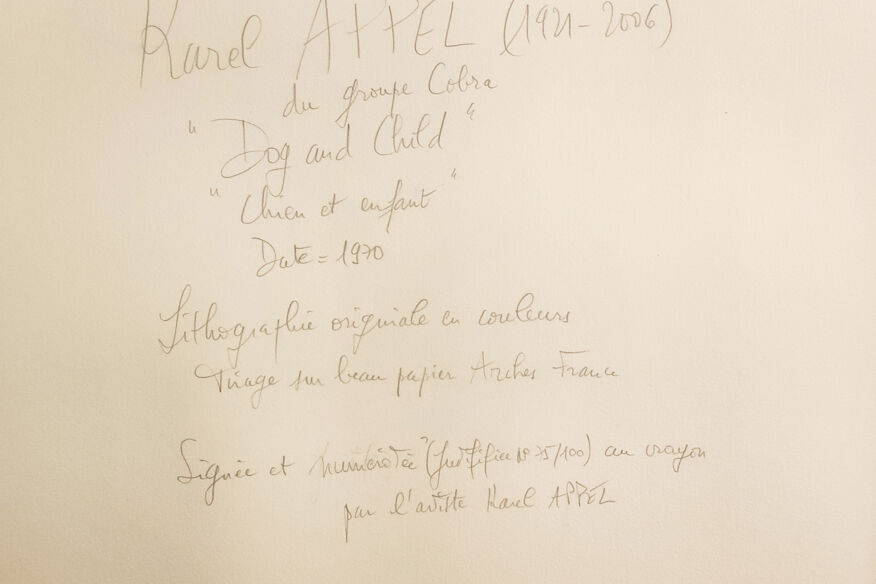 Karel APPEL (1921-2006)
du groupe Cobra
"Dog and Child"
"Chien et enfant"
Date = 1970
Lithographie originale en couleurs
Tirage sur beau papier Arches France
Signée et numérotée (Justifiée N° 75/100) au crayon
par l'artiste Karel APPEL